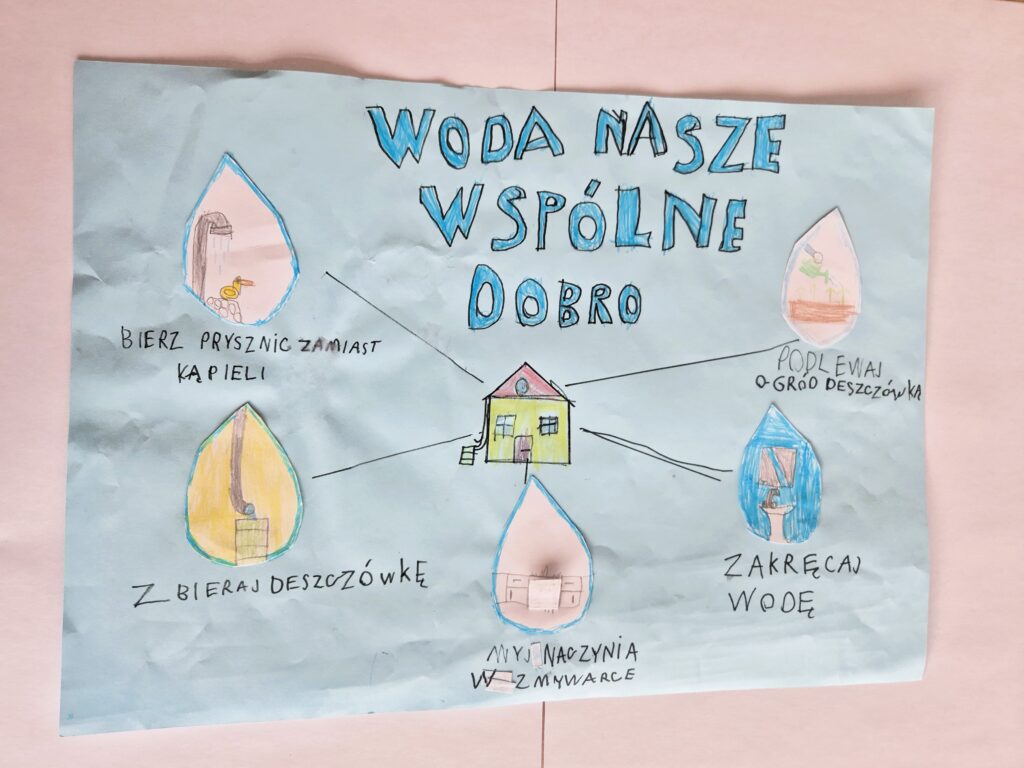 WODA NASZE
WSPÓLNE
DOBRO
BIERZ PRYSZNIC ZAMIAST
KĄPIELI
PODLEWAJ
OGRÓD DESZCZÓWKĄ
ZBIERAJ DESZCZÓWKĘ
ZAKRĘCAJ
WODĘ
MYJ NACZYNIA
W ZMYWARCE